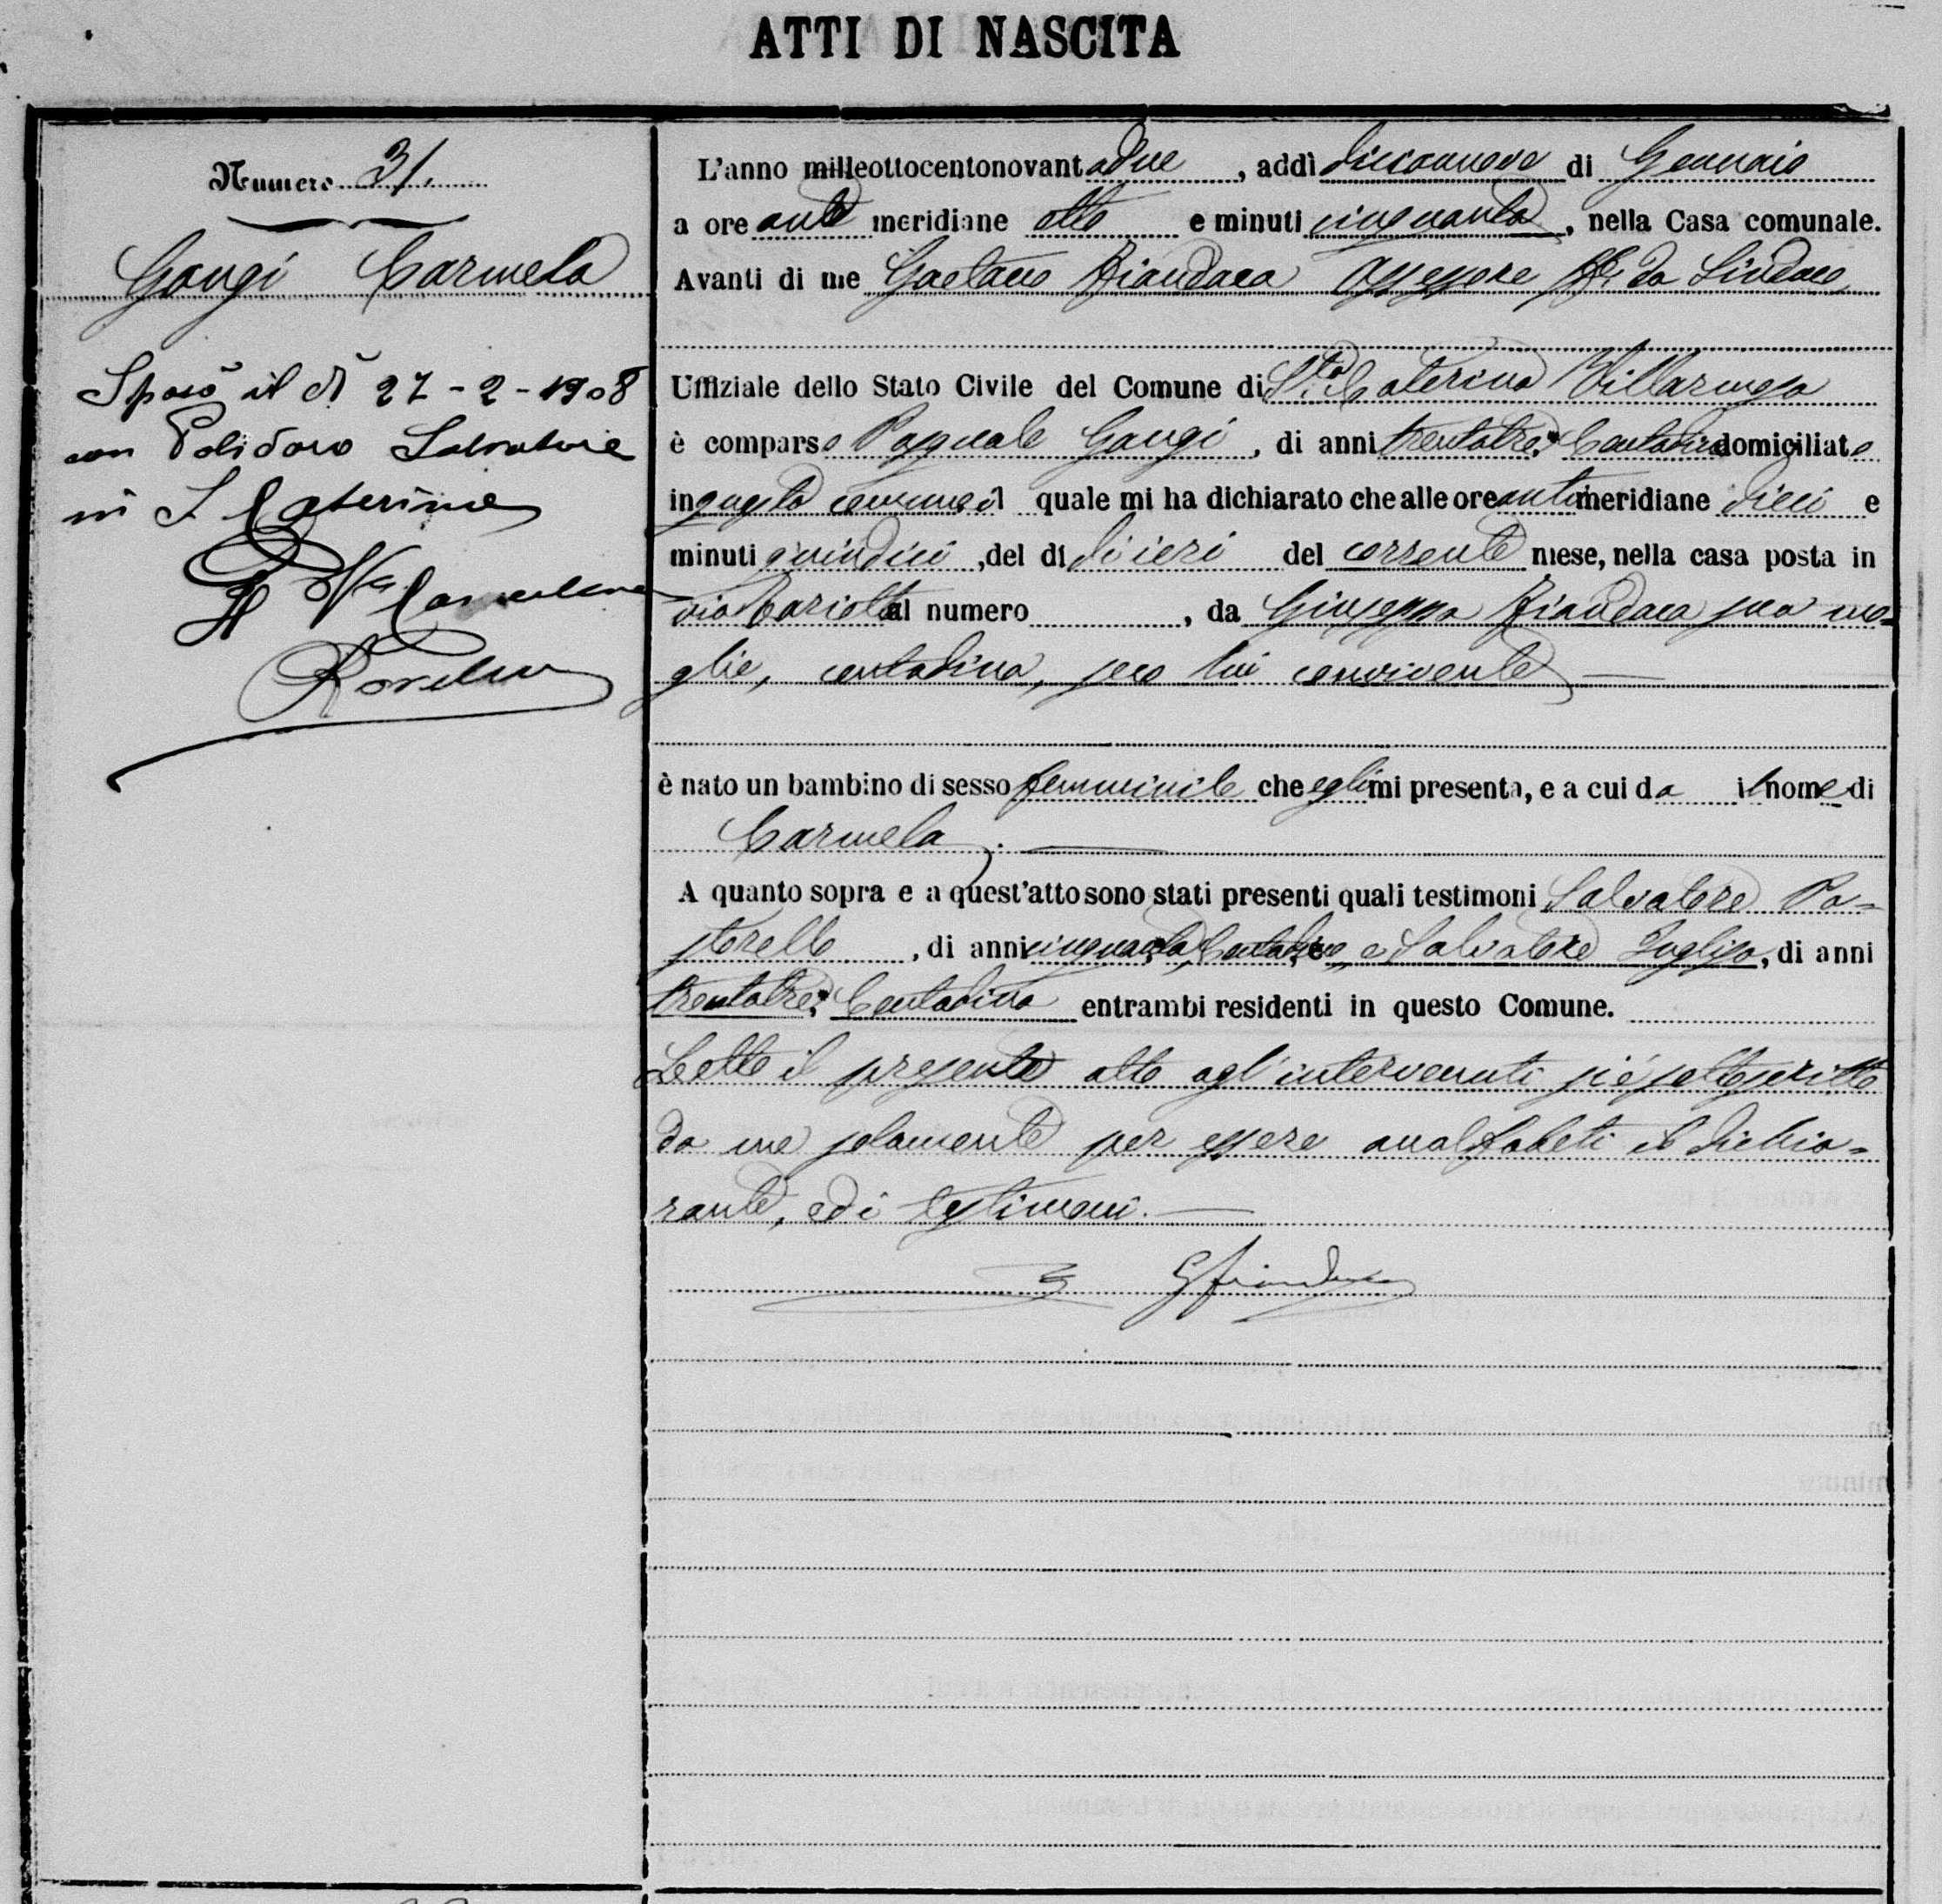 ATTI DI NASCITA
Numero 31.
Gangi Carmela
Sposò il dì 27-2-1908
con Polidoro Salvatore
in S. Caterina
L'anno milleottocentonovantadue, addì diciannove di Gennaio
a ore ante meridiane otto e minuti cinquanta, nella Casa comunale.
Avanti di me Gaetano Fiandaca Assessore ff. da Sindaco
Uffiziale dello Stato Civile del Comune di Sta. Caterina Villarmosa
è comparso Pasquale Gangi, di anni trentatre, Contadino domiciliato
in questo comune il quale mi ha dichiarato che alle ore antimeridiane dieci e
minuti quindici, del dì di ieri del corrente mese, nella casa posta in
via al numero, da Giuseppa Fiandaca sua mo=
glie, contadina, seco lui convivente
è nato un bambino di sesso femminile che egli mi presenta, e a cui da il nome di
Carmela.
A quanto sopra e a quest'atto sono stati presenti quali testimoni Salvatore Pa=
storello, di anni cinquanta, Contadino, e Salvatore Puglisa, di anni
trentatre, Contadino entrambi residenti in questo Comune.
Letto il presente atto agl'intervenuti si è sottoscritto
da me solamente per essere analfabeti il dichia=
rante, ed i testimoni.
G Fiandaca